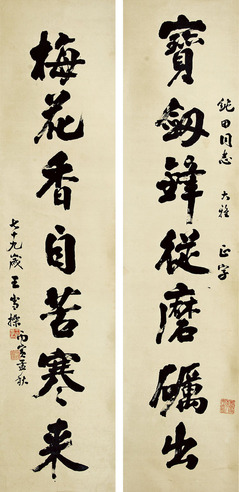 鈍田同志 大雅 正字
寶劍鋒從磨礪出
梅花香自苦寒來
七十九歲王 丙寅孟秋